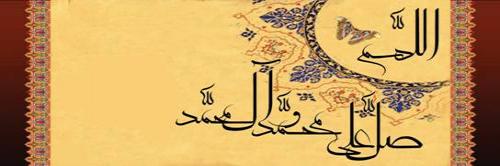 اللّهم
صل علی محمد وآل محمد